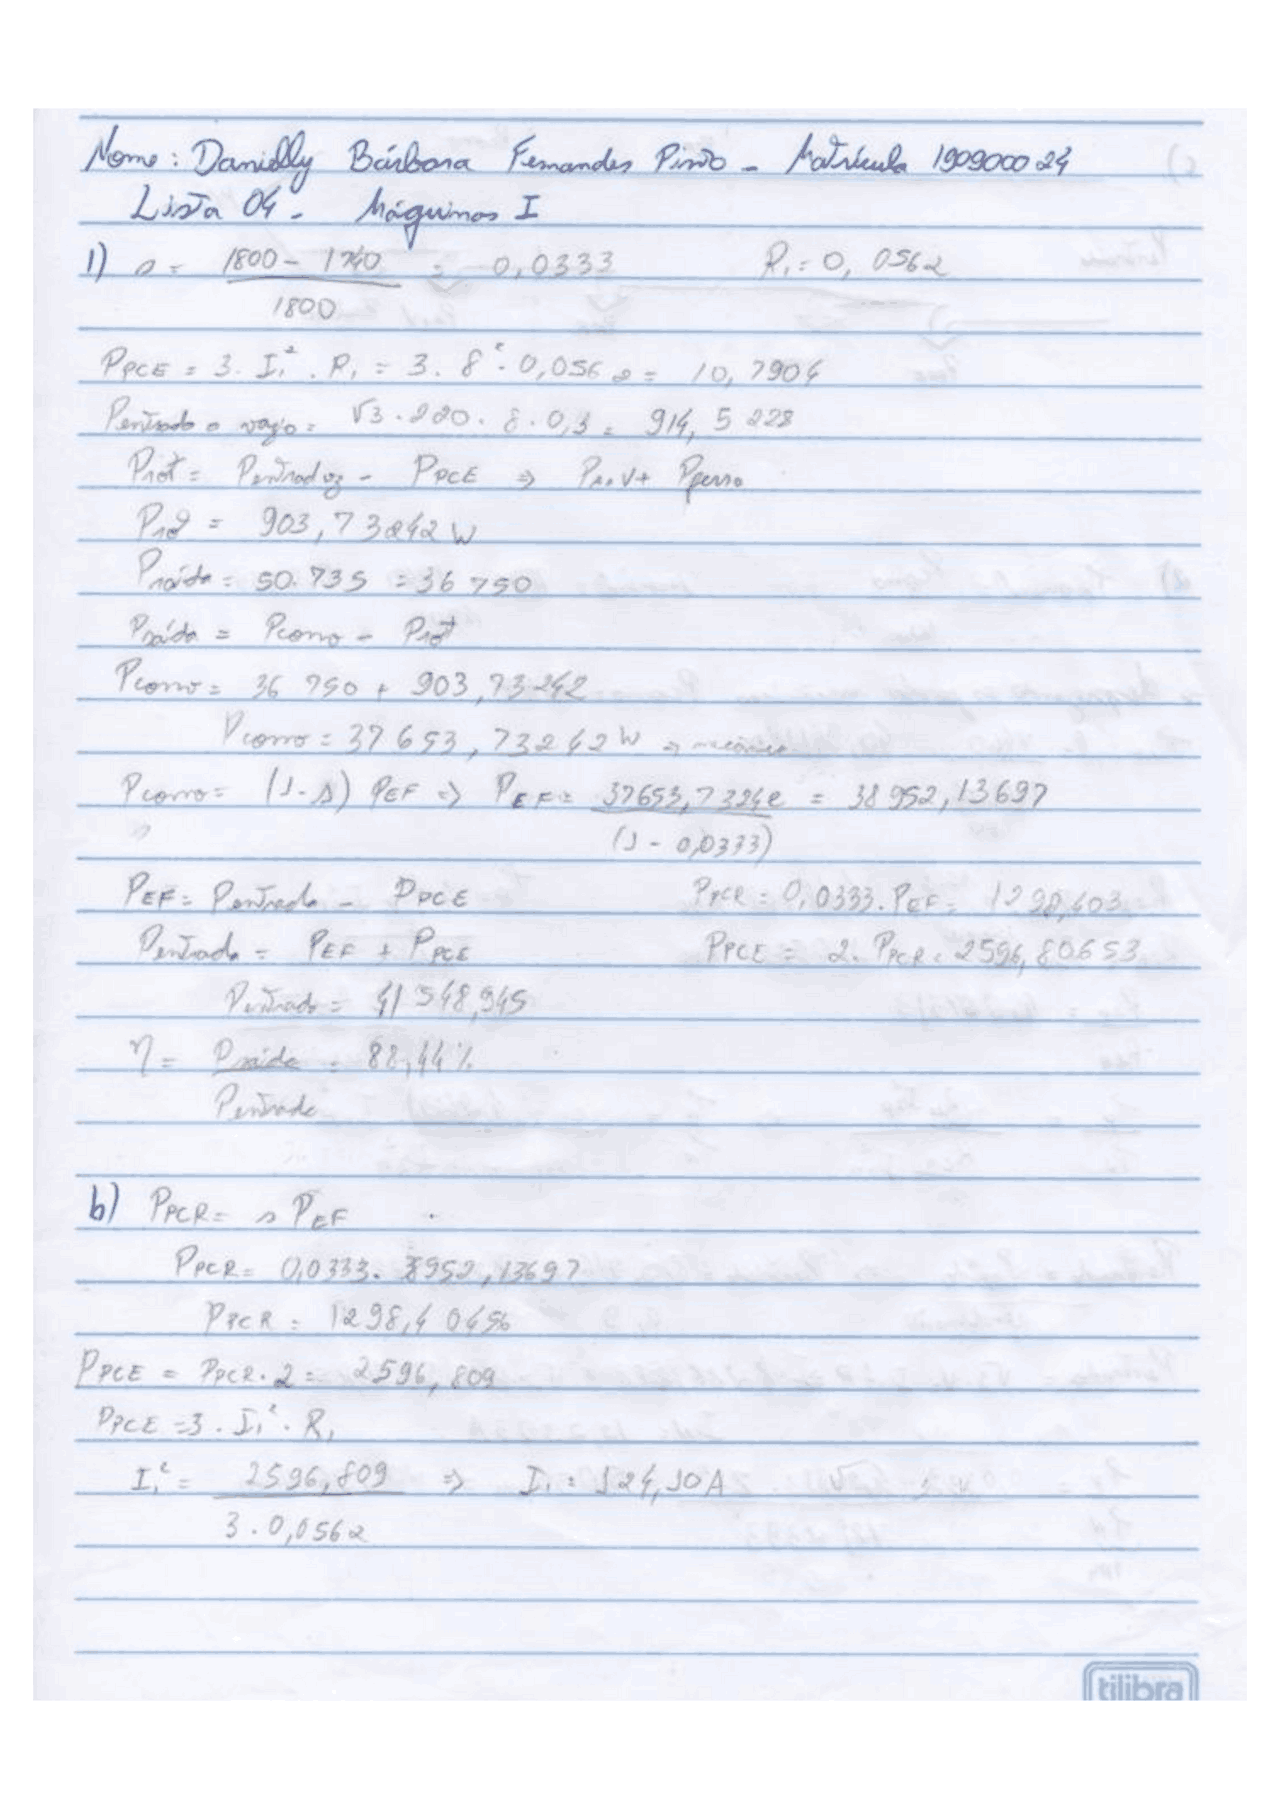 Nome: Danielly Bárbara Fernandes Pinto - Matrícula 190900024
Lista 04 - Máquinas I
1) s = 1800 - 1740 = 0,0333 R1 = 0,0562
1800
PPCE = 3. I1². R1 = 3. 8². 0,0562 = 10,7904
Pentrada a vazio = √3 . 220. 8. 0,3 = 914,5228
Prot = Pentrada vz - PPCE => PAeV + Pferro
Prot = 903,73242 W
Psaída = 50.735 = 36 750
Psaída = Pconv - Prot
Pconv = 36 750 + 903,73242
Pconv = 37653,73242 W => mecânica
Pconv = (1-s) PEF => PEF = 37653,73242 = 38952,13697
(1 - 0,0333)
PEF = Pentrada - PPCE PPCR = 0,0333. PEF = 1298,403
Pentrada = PEF + PPCE PPCE = 2. PPCR = 2596,80653
Pentrada = 41 548,945
η = Psaída = 88,44%
Pentrada
b) PPCR = s PEF
PPCR = 0,0333. 38952,13697
PPCR = 1298,40456
PPCE = PPCR. 2 = 2596,809
PPCE = 3 . I1² . R1
I1² = 2596,809 => I1 = 124,10A
3 . 0,0562
tilibra